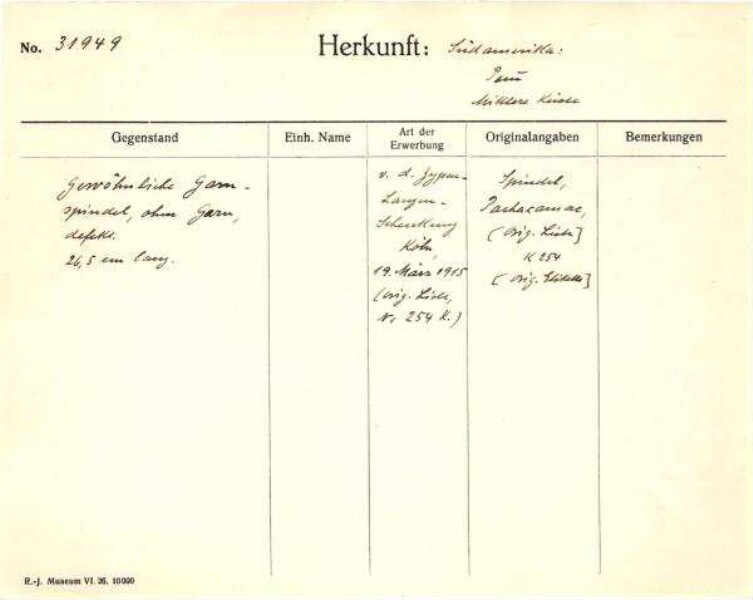 No. 31949
Herkunft: Südamerika:
Peru
Mittlere Küste
Gegenstand
Einh. Name
Art der
Erwerbung
Originalangaben
Bemerkungen
Gewöhnliche Garn-
spindel, ohne Garn,
defekt.
26,5 cm lang.
v. d. Zypen-
Langen-
Schenkung
Köln,
19. März 1915
(orig. Liste,
No 254 K.)
Spindel,
Pachacamac,
(Orig. Liste]
K 254
(Orig. Etikette]
R.-J. Museum VI. 26. 10000